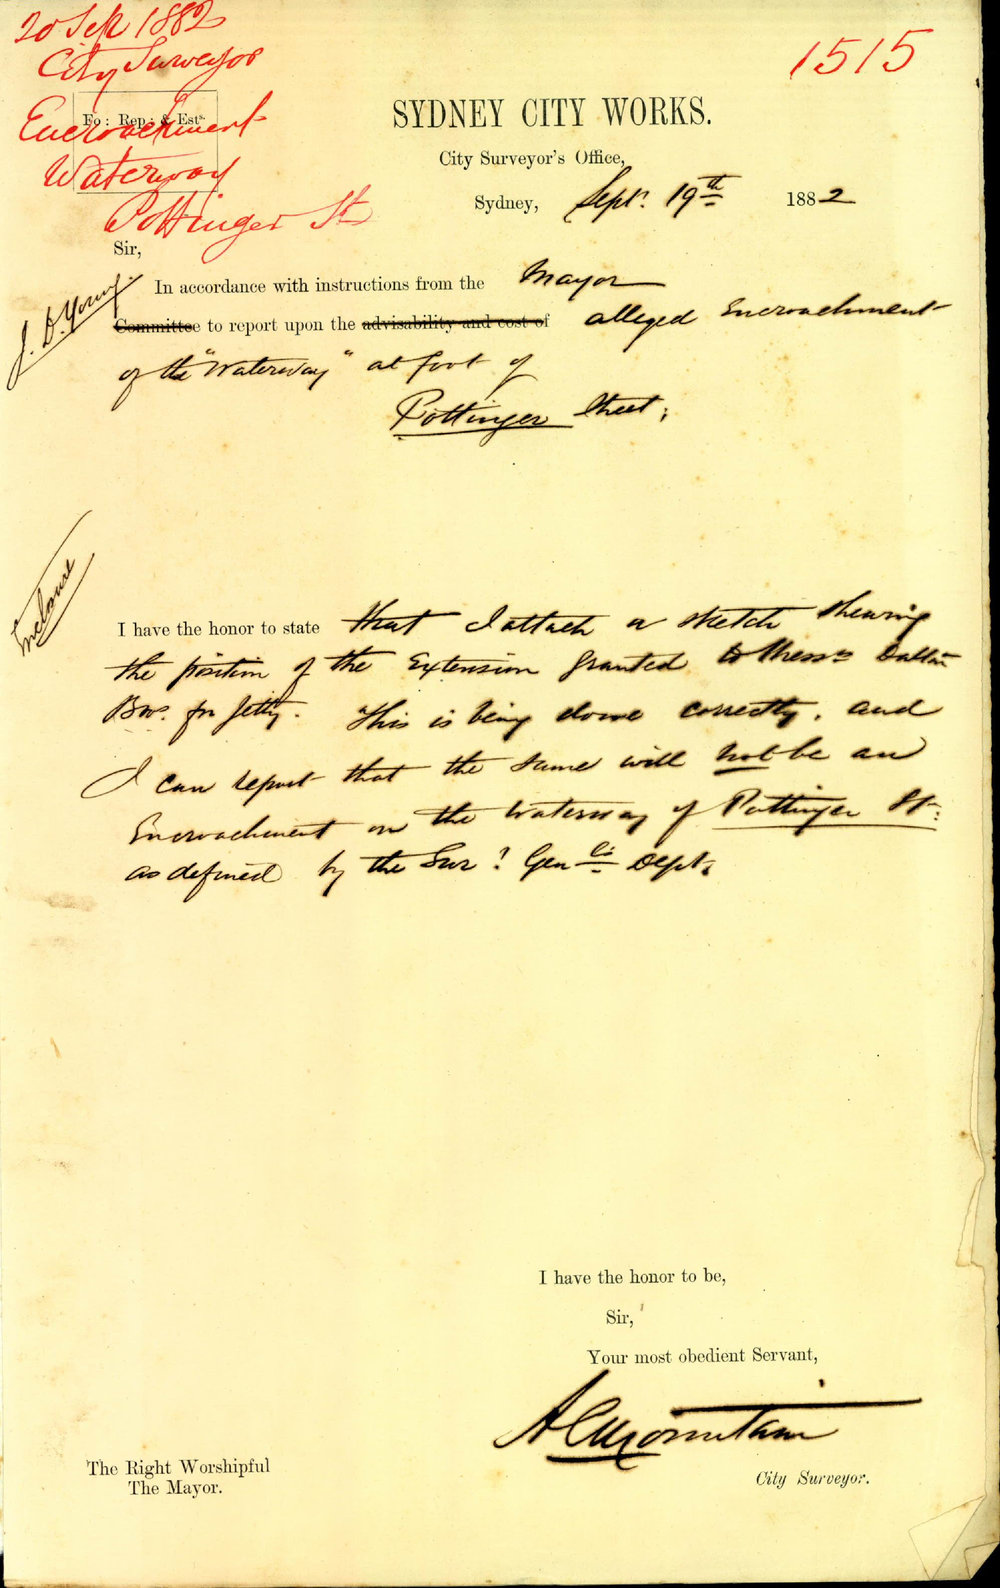 20 Sep 1882
City Surveyor
Encroachment
Waterway
Pottinger St
1515
Fo: Rep: & Ests
SYDNEY CITY WORKS.
City Surveyor's Office,
Sydney, Sept. 19th 1882
Sir,
J. D. Young.
In accordance with instructions from the Mayor
Committee to report upon the advisability and cost of alleged Encroachment
of the "Waterway" at foot of
Pottinger Street;
Enclosure
I have the honor to state that I attach a sketch shewing
the position of the Extension granted to Messrs Dalton
Bros. for Jetty. This is being done correctly, and
I can report that the same will not be an
Encroachment on the Waterway of Pottinger St.
as defined by the Surr Genls Dept.
I have the honor to be,
Sir,
Your most obedient Servant,
A C Mountain
City Surveyor.
The Right Worshipful
The Mayor.